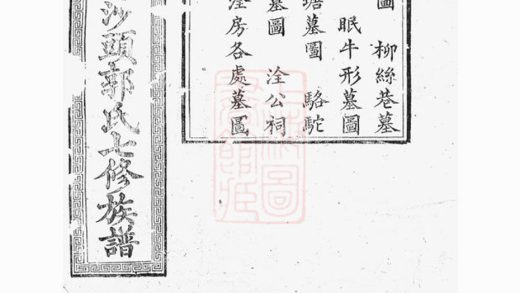 圖 柳絲巷墓
眠牛形墓圖
墓圖 駱駝
墓圖 洤公祠
洤房各處墓圖
沙頭郭氏七修族譜